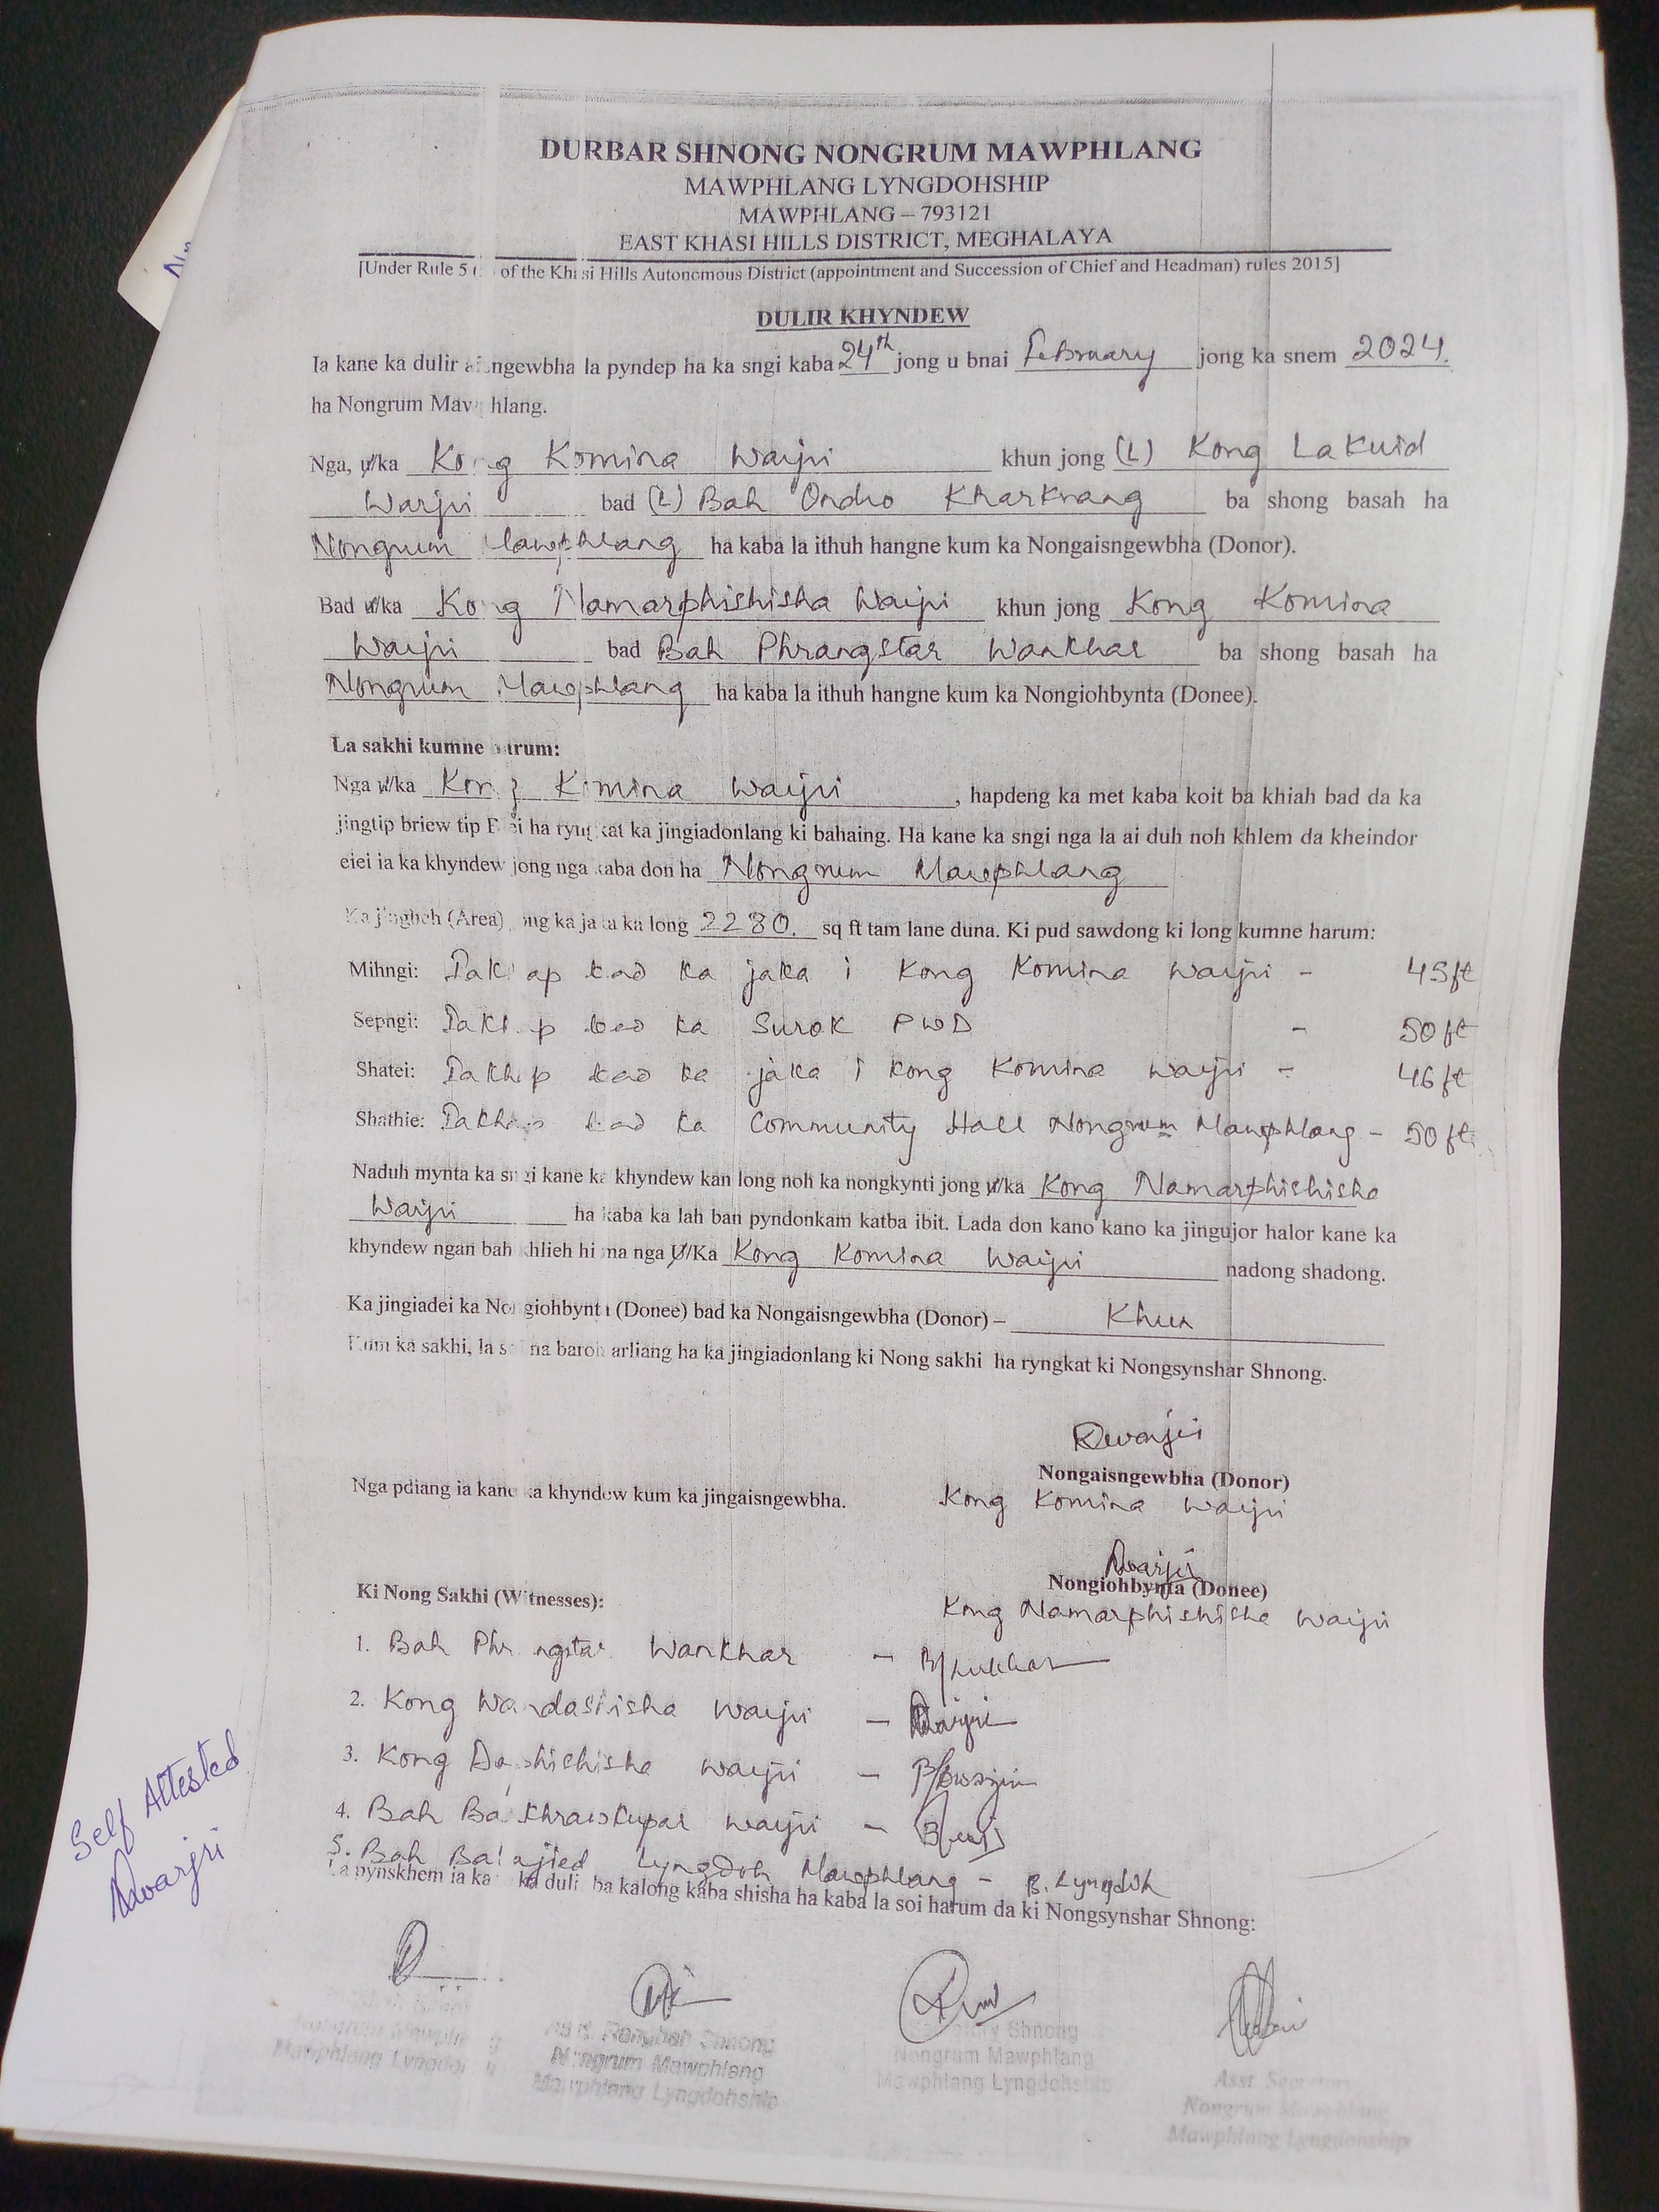 DURBAR SHNONG NONGRUM MAWPHLANG
MAWPHLANG LYNGDOHSHIP
MAWPHLANG – 793121
EAST KHASI HILLS DISTRICT, MEGHALAYA
[Under Rule 5 ( of the Khasi Hills Autonomous District (appointment and Succession of Chief and Headman) rules 2015]
DULIR KHYNDEW
Ia kane ka dulir aisngewbha la pyndep ha ka sngi kaba 24th jong u bnai February jong ka snem 2024.
ha Nongrum Mawphlang.
Nga, u/ka Kong Komina Warjri khun jong (L) Kong Lakuid
Warjri bad (L) Bah Ondro Kharknang ba shong basah ha
Nongrum Mawphlang ha kaba la ithuh hangne kum ka Nongaisngewbha (Donor).
Bad u/ka Kong Namarphishisha Warjri khun jong Kong Komina
Warjri bad Bah Phrangstar Wankhar ba shong basah ha
Nongrum Mawphlang ha kaba la ithuh hangne kum ka Nongiohbynta (Donee).
La sakhi kumne harum:
Nga u/ka Kong Komina Warjri, hapdeng ka met kaba koit ba khiah bad da ka
jingtip briew tip Blei ha ryngkat ka jingiadonlang ki bahaing. Ha kane ka sngi nga la ai duh noh khlem da kheindor
eiei ia ka khyndew jong nga kaba don ha Nongrum Mawphlang
Ka jingheh (Area) jong ka jaka ka long 2280. sq ft tam lane duna. Ki pud sawdong ki long kumne harum:
Mihngi: Iakhap bad ka jaka i Kong Komina Warjri - 45ft
Sepngi: Iakhap bad ka Surok PWD - 50ft
Shatei: Iakhap bad ka jaka i Kong Komina Warjri - 46ft
Shathie: Iakhap bad ka Community Hall Nongrum Mawphlang - 50ft.
Naduh mynta ka sngi kane ka khyndew kan long noh ka nongkynti jong u/ka Kong Namarphishisha
Warjri ha kaba ka lah ban pyndonkam katba ibit. Lada don kano kano ka jingujor halor kane ka
khyndew ngan bah khlieh hi ma nga U/Ka Kong Komina Warjri nadong shadong.
Ka jingiadei ka Nongiohbynta (Donee) bad ka Nongaisngewbha (Donor) – Khun
Kum ka sakhi, la soi na baroh arliang ha ka jingiadonlang ki Nong sakhi ha ryngkat ki Nongsynshar Shnong.
KWarjri
Nongaisngewbha (Donor)
Nga pdiang ia kane ka khyndew kum ka jingaisngewbha. Kong Komina Warjri
NWarjri
Nongiohbynta (Donee)
Ki Nong Sakhi (Witnesses): Kong Namarphishisha Warjri
1. Bah Phrangstar Wankhar -
2. Kong Wandashisha Warjri - Warjri
3. Kong Daphishisha Warjri -
4. Bah Bakhrawkupar Warjri -
5. Bah Lyngdoh Mawphlang - B. Lyngdoh
La pynskhem ia kane ka dulir ba kalong kaba shisha ha kaba la soi harum da ki Nongsynshar Shnong:
Self Attested
NWarjri
Nongrum Mawphlang
Mawphlang Lyngdohship
Asst. Rangbah Shnong
Nongrum Mawphlang
Mawphlang Lyngdohship
Secretary Shnong
Nongrum Mawphlang
Mawphlang Lyngdohship
Asst. Secretary
Nongrum Mawphlang
Mawphlang Lyngdohship